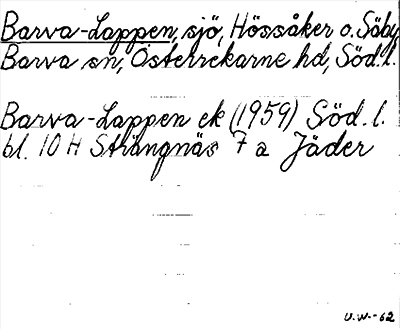 Barva-Lappen, sjö, Hössåker o. Säby
Barva sn, Österrekarne hd, Söd. l.
Barva-Lappen ek (1959) Söd. l.
bl. 10 H Strängnäs 7 a Jäder
U.W.-62